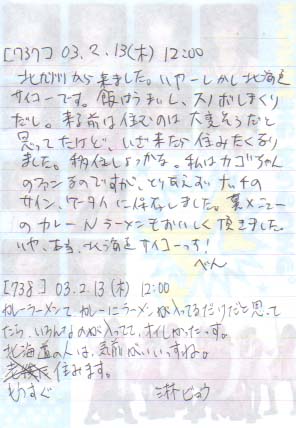 [737] 03.2.13(木) 12:00
北九州から来ました。いやーしかし北海道
サイコーです。飯はうまいし、スノボしまくり
だし。来る前は住むのは大変そうだと
思ってたけど、いざ来たら住みたくなり
ました。移住しよっかな。私はカゴちゃん
のファンなのですが、とりあえず ナッチの
サイン、ケータイに保存しました。裏メニュー
のカレーラーメンもおいしく頂きました。
いや、本当、北海道サイコーっす!
べん
[738] 03.2.13(木) 12:00
カレーラーメンて カレーにラーメンが入ってるだけだと思って
たら、いろんなのが入ってて、オイしかったっす。
北海道の人は、気前がいいっすね。
住みます。
もうすぐ